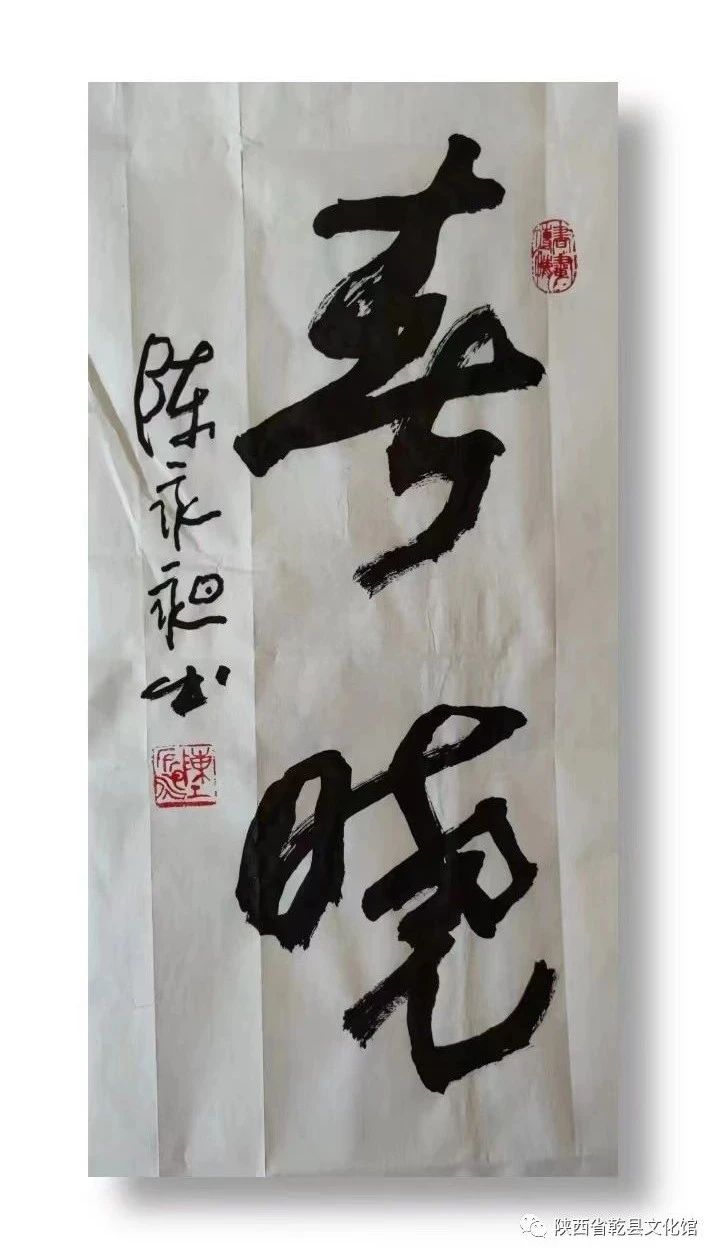 春晓
陈永昶书
陕西省乾县文化馆